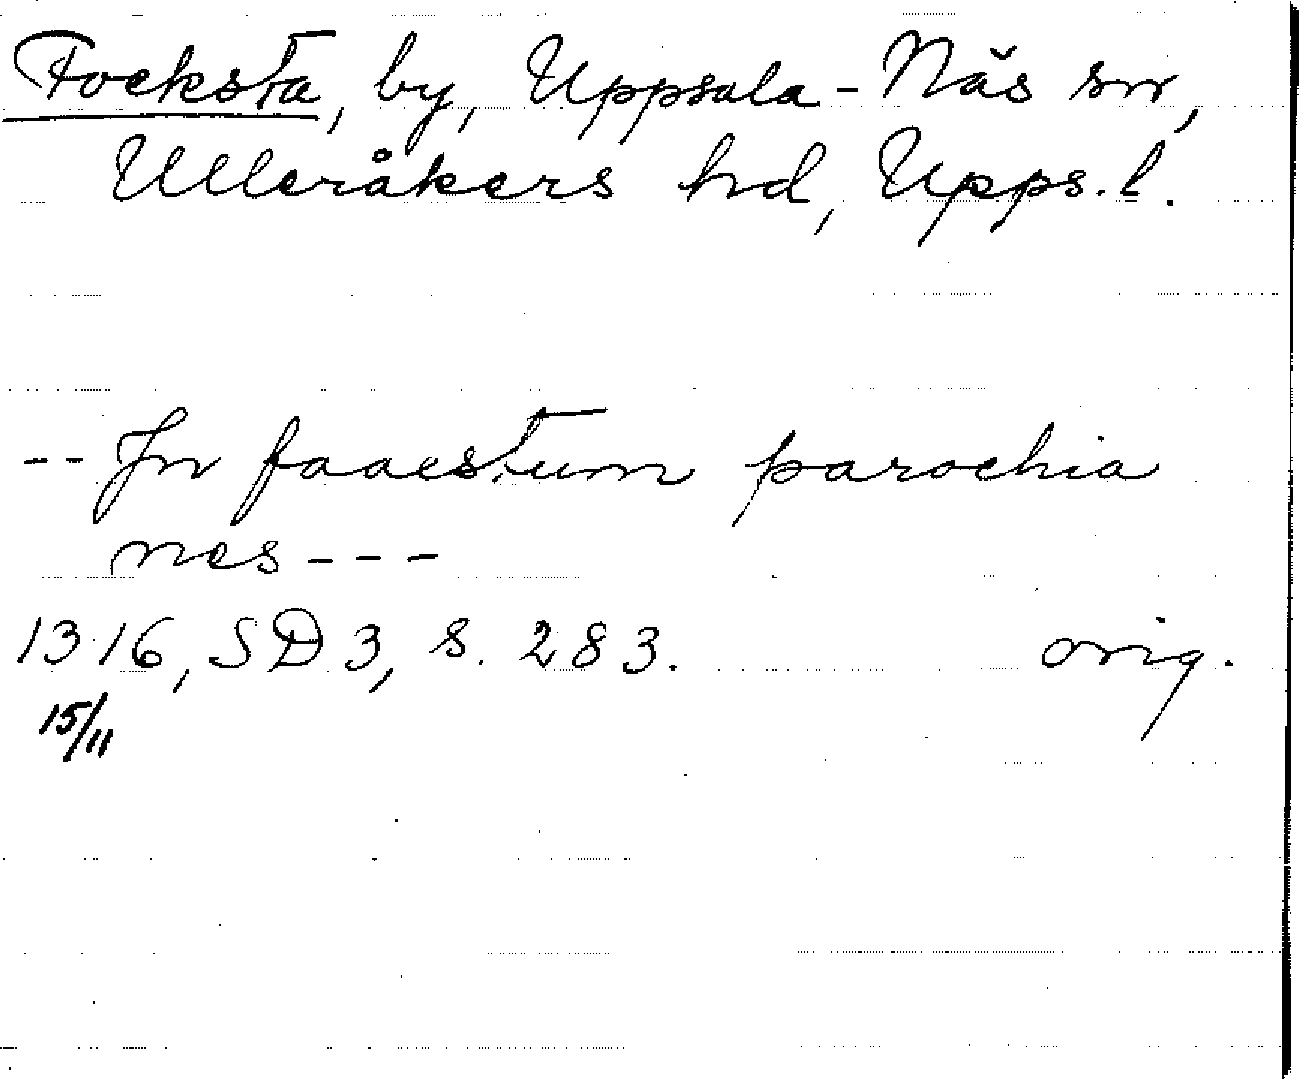 Focksta, by, Uppsala-Näs sn,
Ulleråkers hd, Upps. l.
-- Jn faaestum parochia
nes ---
1316, SD 3, s. 283. orig.
15/11